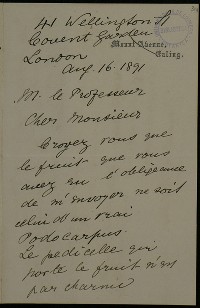 41 Wellington St
Covent Garden
Mount Avenue,
London
Ealing.
Aug. 16. 1891
M. le Professeur
Cher Monsieur
Croyez vous que
le fruit que vous
avez eu l'obligeance
de m'envoyer ne soit
celui d'un vrai
Podocarpus.
Le pedicelle qui
porte le fruit n'est
pas charnu